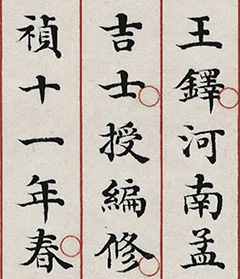 王鐸河南孟
吉士授編修
禎十一年春